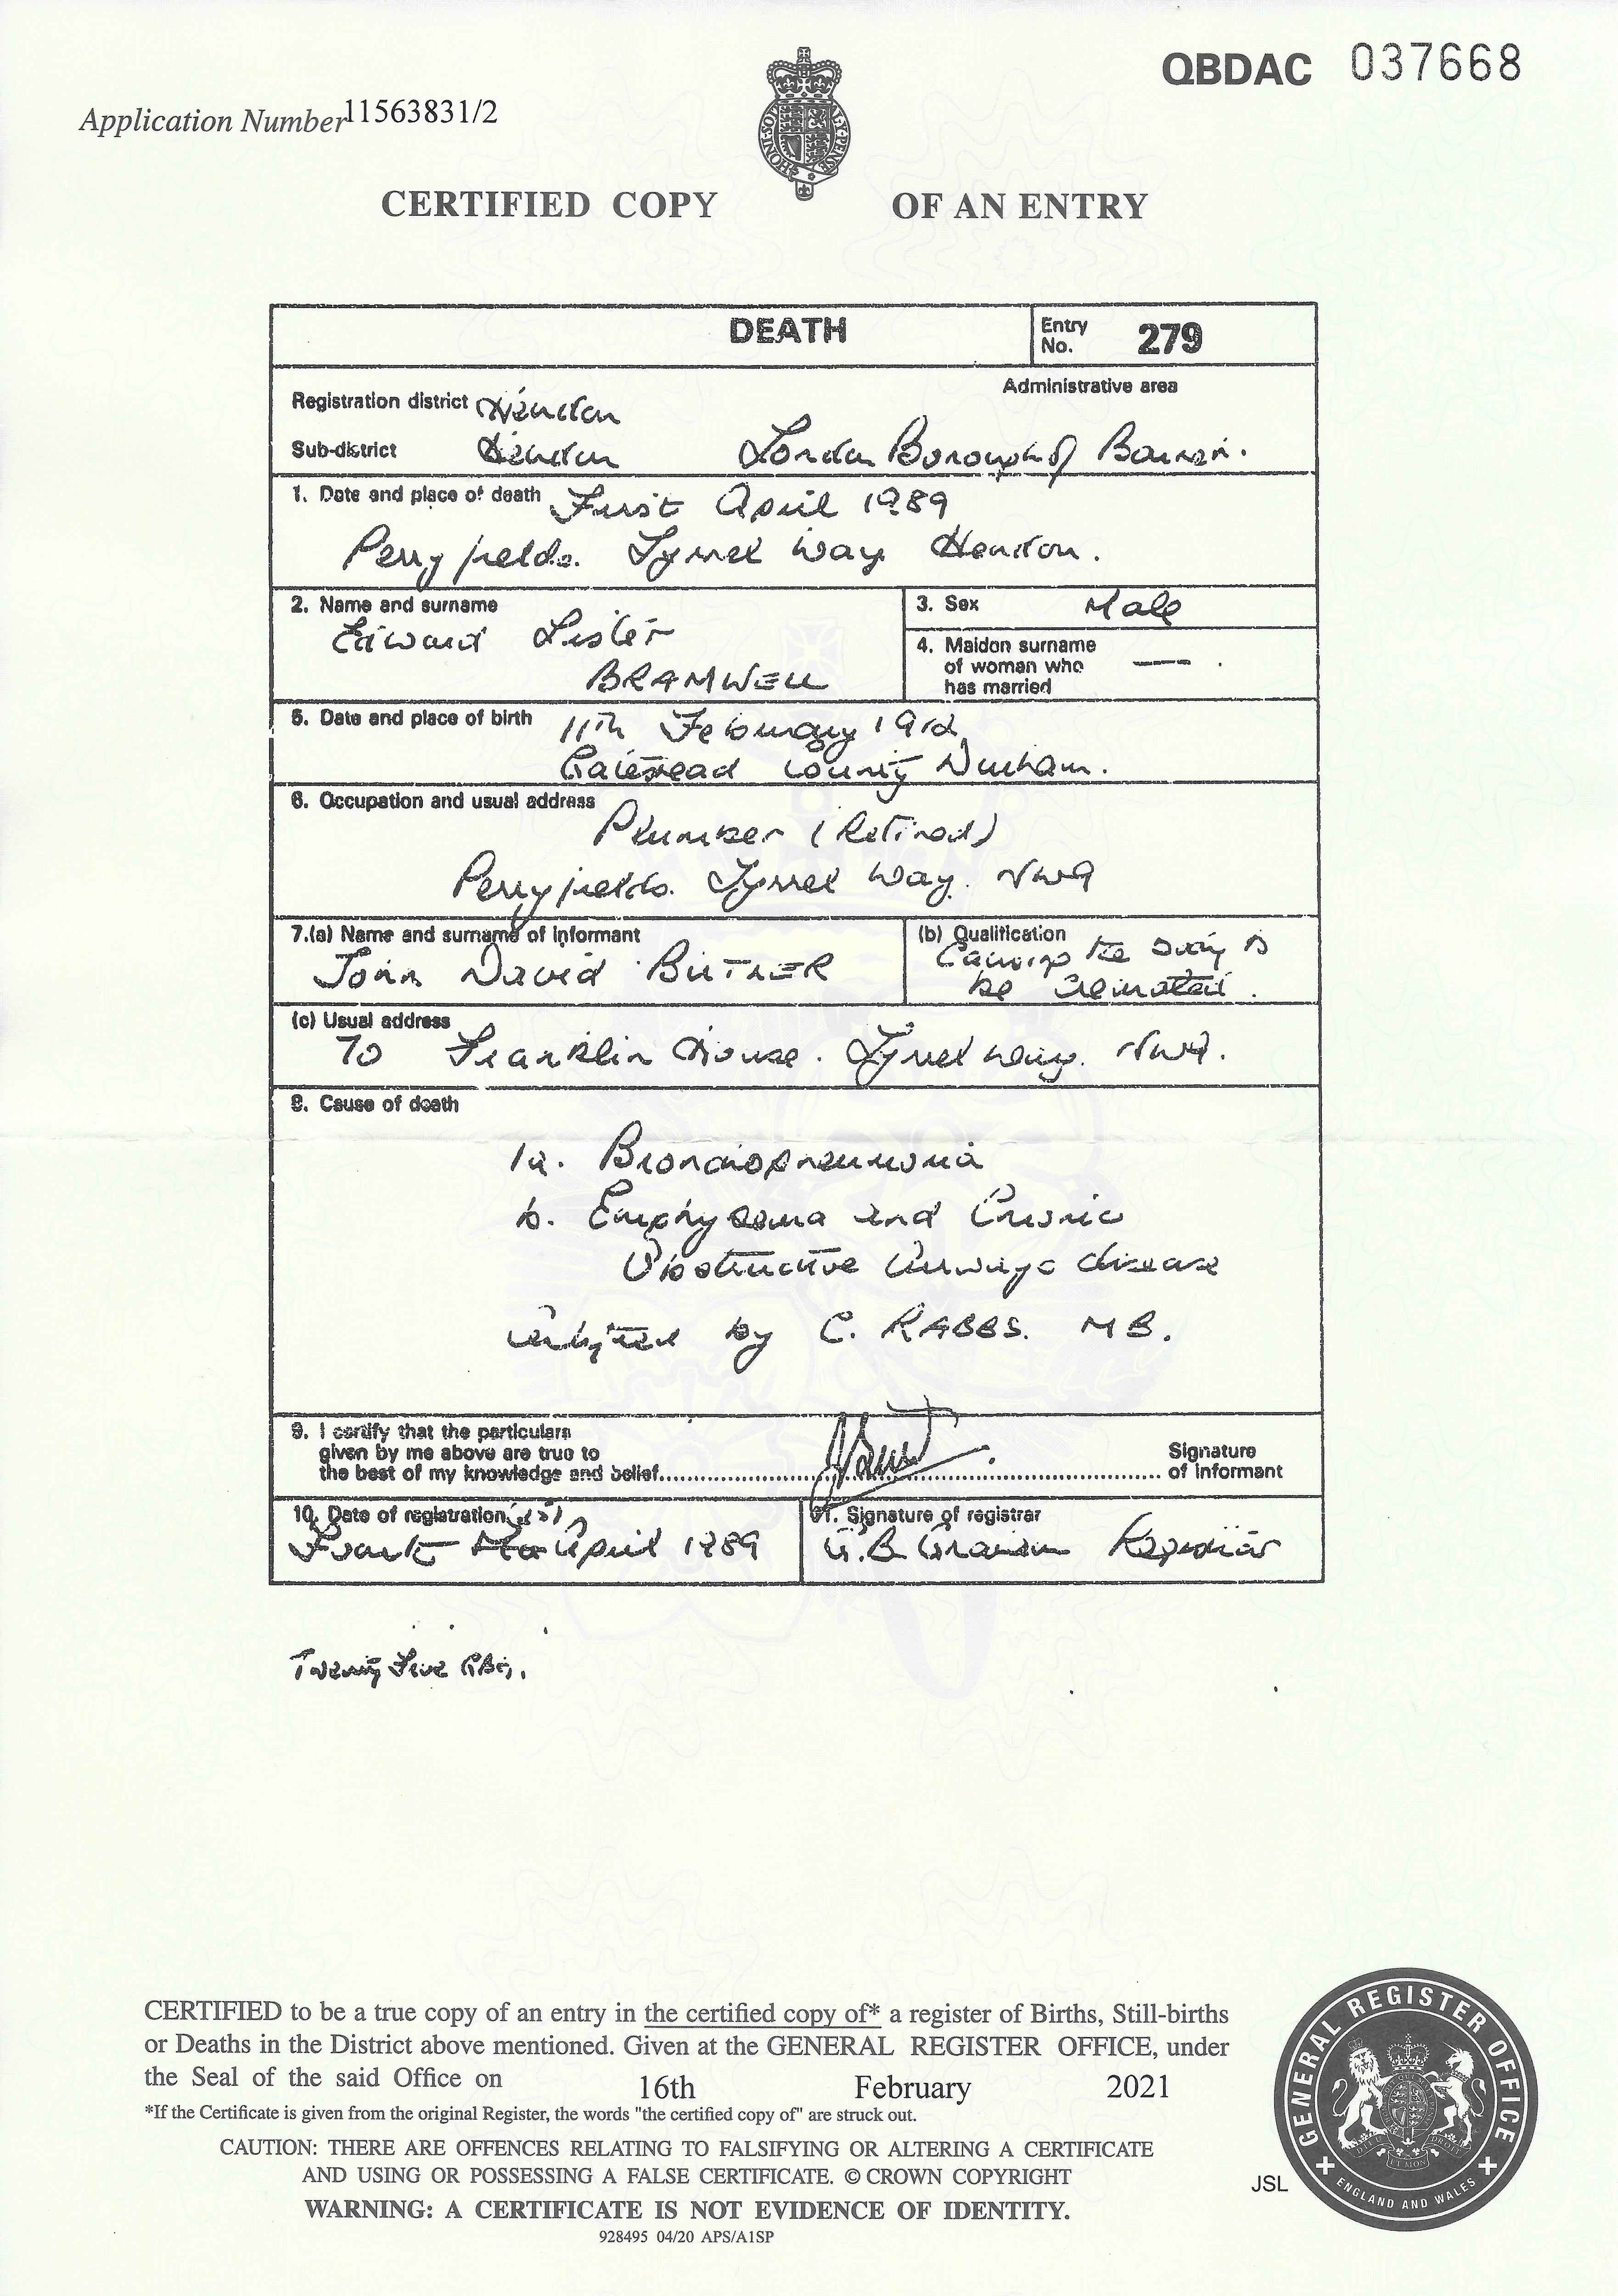 QBDAC 037668
Application Number 11563831/2
CERTIFIED COPY OF AN ENTRY
DEATH
Entry No. 279
Administrative area
Registration district Hendon
Sub-district Hendon London Borough of Barnet.
1. Date and place of death First April 1989
Perryfields. Tyrrel Way Hendon.
2. Name and surname
Edward Lister
BRAMWELL
3. Sex Male
4. Maiden surname
of woman who —
has married
5. Date and place of birth 11th February 1912
Gateshead County Durham.
6. Occupation and usual address
Plumber (Retired)
Perryfields. Tyrrel Way. NW9
7.(a) Name and surname of informant
John David BUTLER
(b) Qualification
Causing the body to
be cremated.
(c) Usual address
70 Franklin House. Tyrrel Way. NW9.
8. Cause of death
1a. Bronchopneumonia
b. Emphysema and Chronic
Obstructive Airways disease
Certified by C. RABBS. MB.
9. I certify that the particulars
given by me above are true to
the best of my knowledge and belief
Signature
of informant
10. Date of registration
April 1989
11. Signature of registrar
G.B. Graham Registrar
Twenty Five GBG.
CERTIFIED to be a true copy of an entry in the certified copy of* a register of Births, Still-births
or Deaths in the District above mentioned. Given at the GENERAL REGISTER OFFICE, under
the Seal of the said Office on 16th February 2021
*If the Certificate is given from the original Register, the words "the certified copy of" are struck out.
CAUTION: THERE ARE OFFENCES RELATING TO FALSIFYING OR ALTERING A CERTIFICATE
AND USING OR POSSESSING A FALSE CERTIFICATE. © CROWN COPYRIGHT
WARNING: A CERTIFICATE IS NOT EVIDENCE OF IDENTITY.
928495 04/20 APS/A1SP
JSL
GENERAL REGISTER OFFICE
ENGLAND AND WALES